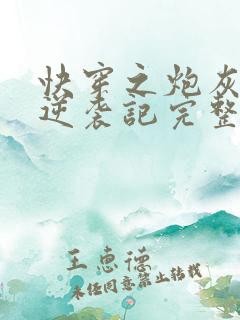 快穿之炮灰
逆袭記完整
王惠德
未经同意禁止转载